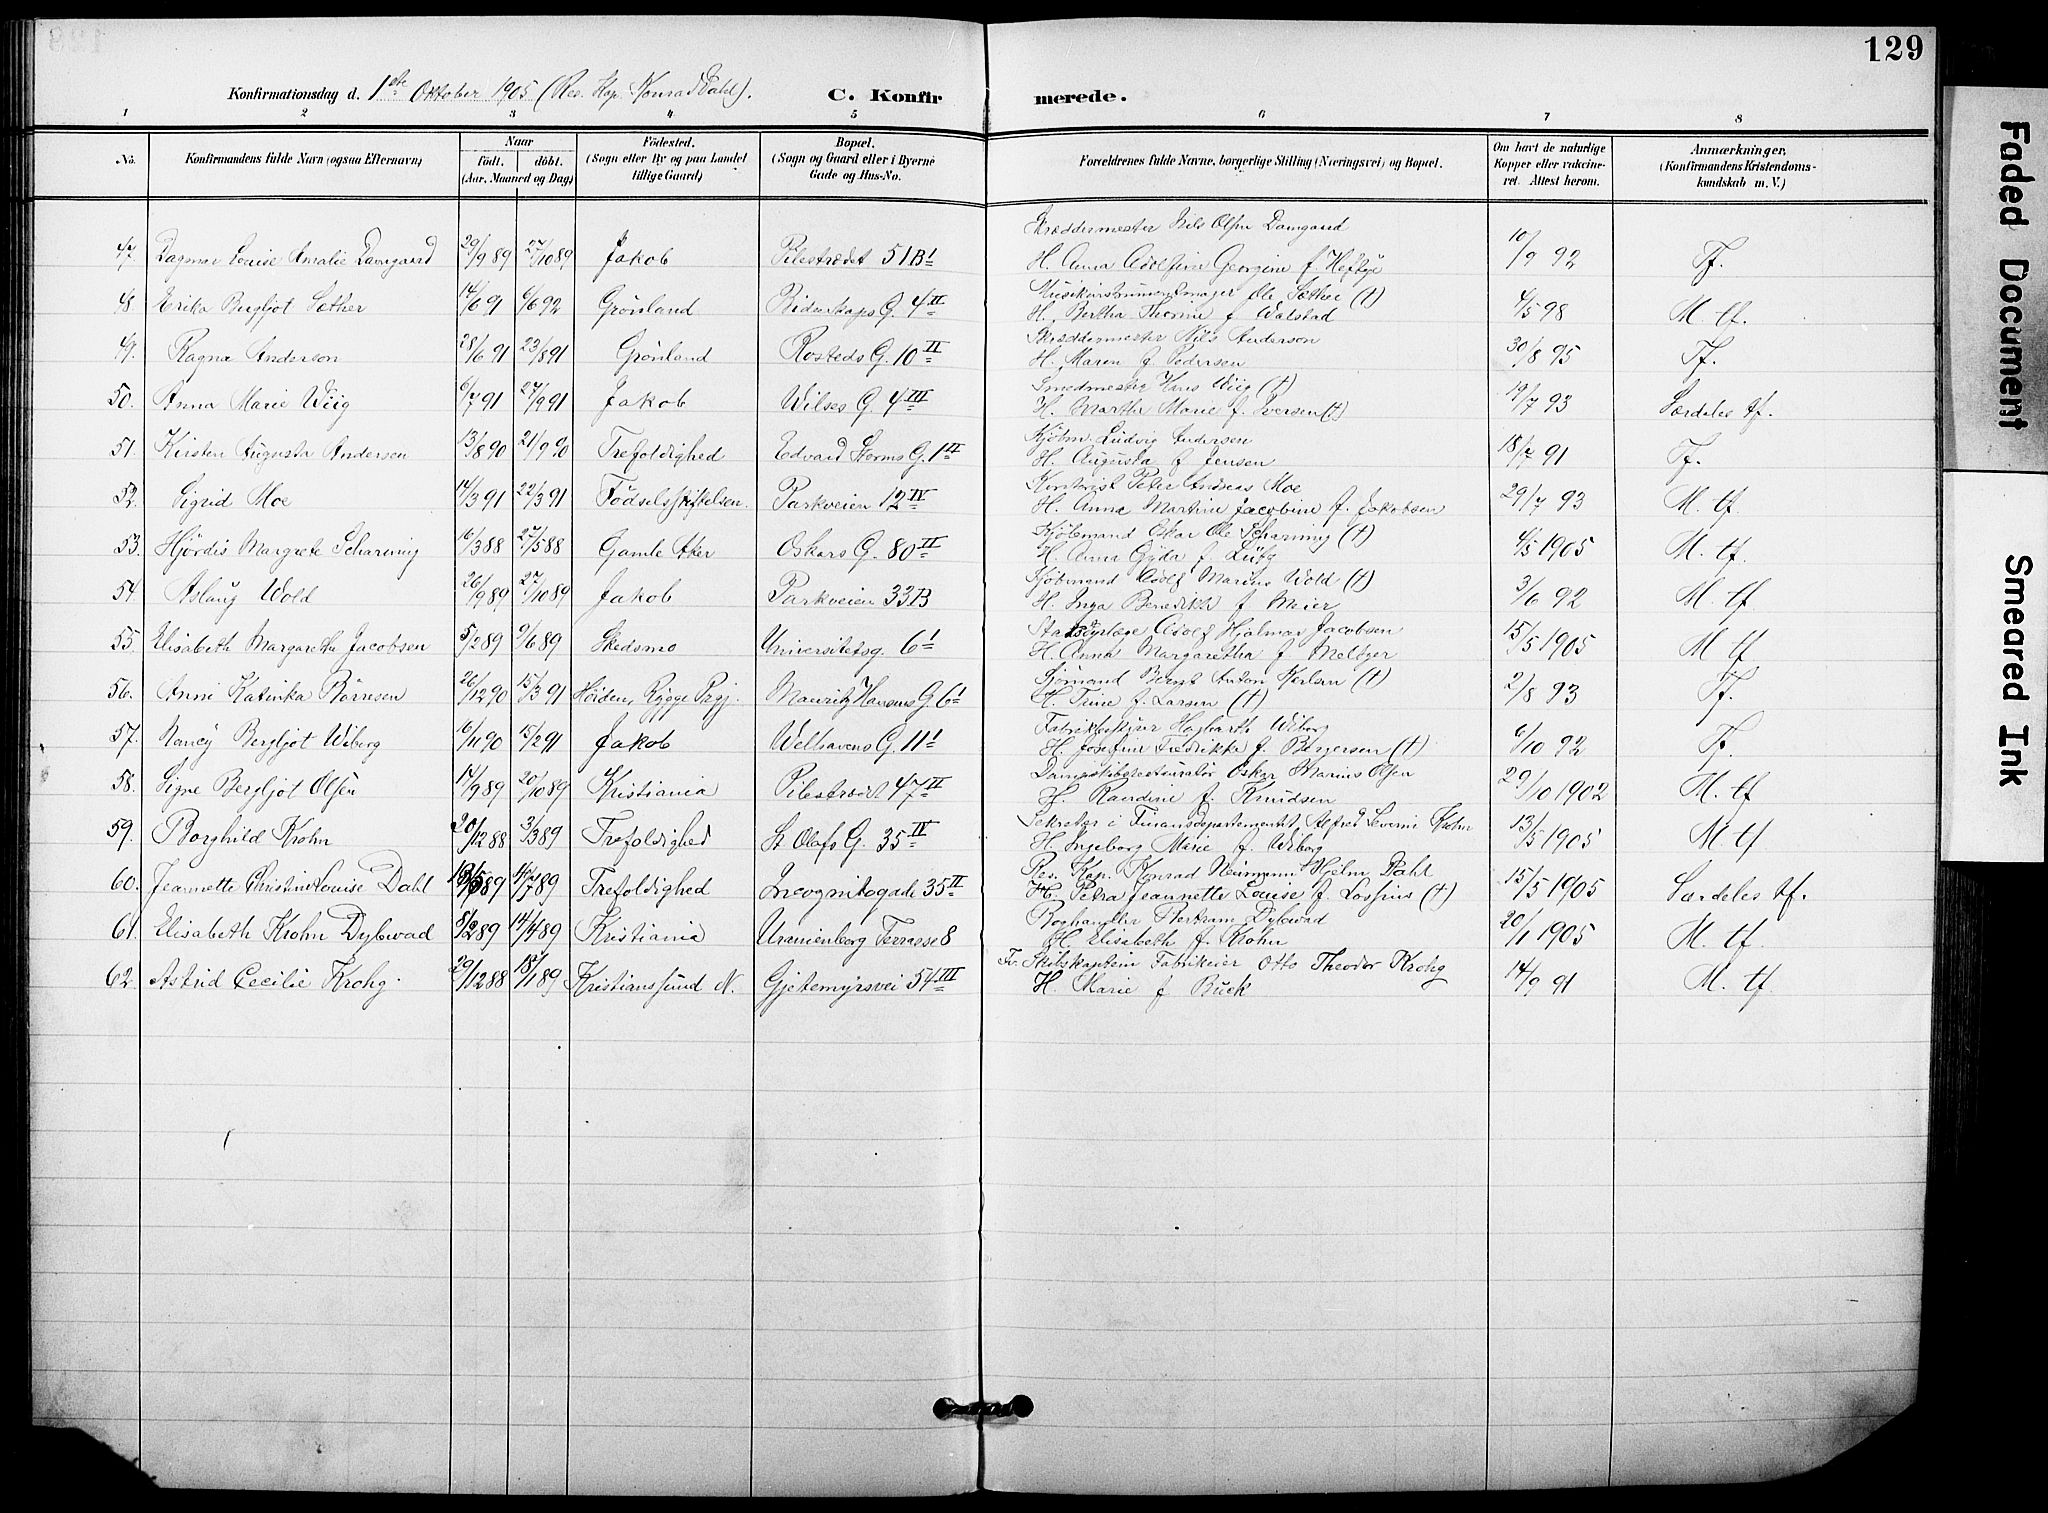 129
Konfirmationsdag d. 1ste Oktober 1905 (Res. Kap. Konrad Dahl). C. Konfirmerede.
1 2 3 4 5 6 7 8
No. Konfirmandens fulde Navn (ogsaa Efternavn) Naar født. døbt. (Aar, Maaned og Dag) Fødested. (Sogn eller By og paa Landet tillige Gaard) Bopæl. (Sogn og Gaard eller i Byerne Gade og Hus-No. Forældrenes fulde Navne, borgerlige Stilling (Næringsvei) og Bopæl. Om havt de naturlige Kopper eller vakcineret. Attest herom. Anmærkninger, (Konfirmandens Kristendomskundskab m. V.)
Skræddermester Nils Olsen Damgaard
47. Dagmar Louise Amalie Damgaard 29/9 89 27/10 89 Jakob Pilestrædet 51 B I H. Anna Adolfine Georgine f. Heftye 10/9 92 Tf.
Musikinstrumentmager Ole Sæther (†)
48. Erika Bergljot Sæther 14/6 91 6/6 92 Grønland Ridderstaps G. 4 II H. Bertha Thorine f. Walstad 4/5 98 M. tf.
Skræddermester Nils Anderson
49. Ragna Anderson 28/6 91 23/8 91 Grønland Rosteds G. 10 II H. Maren f. Pedersen 30/8 95 Tf.
Smedmester Hans Wiig (†)
50. Anna Marie Wiig 6/7 91 27/9 91 Jakob Wilses G. 4 III H. Martha Marie f. Iversen (†) 19/7 93 Særdeles tf.
Kjøbm. Ludvig Andersen
51. Kirsten Augusta Andersen 13/8 90 21/9 90 Trefoldighed Edvard Storms G. 1 II H. Augusta f. Jensen 18/7 91 Tf.
Kontorist Peter Andreas Moe
52. Sigrid Moe 14/3 91 22/3 91 Fødselsstiftelsen. Parkveien 12 IV H. Anna Martine Jacobine f. Jakobsen 29/7 93 M. tf.
Kjøbmand Oskar Ole Scharning (†)
53. Hjørdis Margrete Scharning 16/3 88 27/5 88 Gamle Aker Oskars G. 80 II H. Anna Gyda f. 4/5 1905 M. tf.
Kjøbmand Adolf Marius Wold (†)
54. Aslaug Wold 26/9 89 27/10 89 Jakob Parkveien 33 B H. Inga Benedikte f. Meier 3/6 92 M. tf.
Adolf Hjalmar Jacobsen
55. Elisabeth Margaretha Jacobsen 5/2 89 9/6 89 Skedsmo Universitetsg. 6 I H. Anna Margaretha f. Meltzer 15/5 1905 M tf
Sjømand Bernt Anton (†)
56. Anni Katinka Børresen 26/12 90 15/3 91 Høiden, Rygge Prgj. Mauritz Hansens G. 6 I H. Trine f. Larsen (†) 2/8 93 Tf.
Wiborg
57. Nancy Bergljot Wiborg 16/11 90 15/2 91 Jakob Welhavens G. 11 I H. Josefine Fredrikke f. Børgersen (†) 6/10 92 Tf.
Dampskibsrestauratør Oskar Marius Olsen
58. Signe Bergljot Olsen 14/9 89 20/10 89 Kristiania Pilestrædet 47 II H. Randine f. Knudsen 29/10 1902 M. tf
Sekretær i Finansdepartementet, Alfred Severin Krohn
59. Borghild Krohn 20/12 88 3/3 89 Trefoldighed St Olafs G. 35 IV H. Ingeborg Marie f. Wiborg 13/5 1905 M tf
Res. Kap. Konrad Neumann Hjelm Dahl
60. Jeannette Christine Louise Dahl /5 89 /7 89 Trefoldighed Incognitogade 35 II H. Petra Jeannette Louise f. Lossius (†) 15/5 1905 Særdeles tf.
Boghandler Bertram Dybwad
61. Elisabeth Krohn Dybwad 8/2 89 14/4 89 Kristiania Uranienborg Terrasse 8 H. Elisabeth f. Krohn 20/1 1905 M. tf.
Fv. Skibskaptein Fabrikeier Otto Theodor Krohg
62. Astrid Cecilie Krohg. 29/12 88 18/1 89 Kristianssund N. Gjetemyrsvei 54 III H. Marie f Buck 14/9 91 M. tf.
Faded Document
Smeared Ink